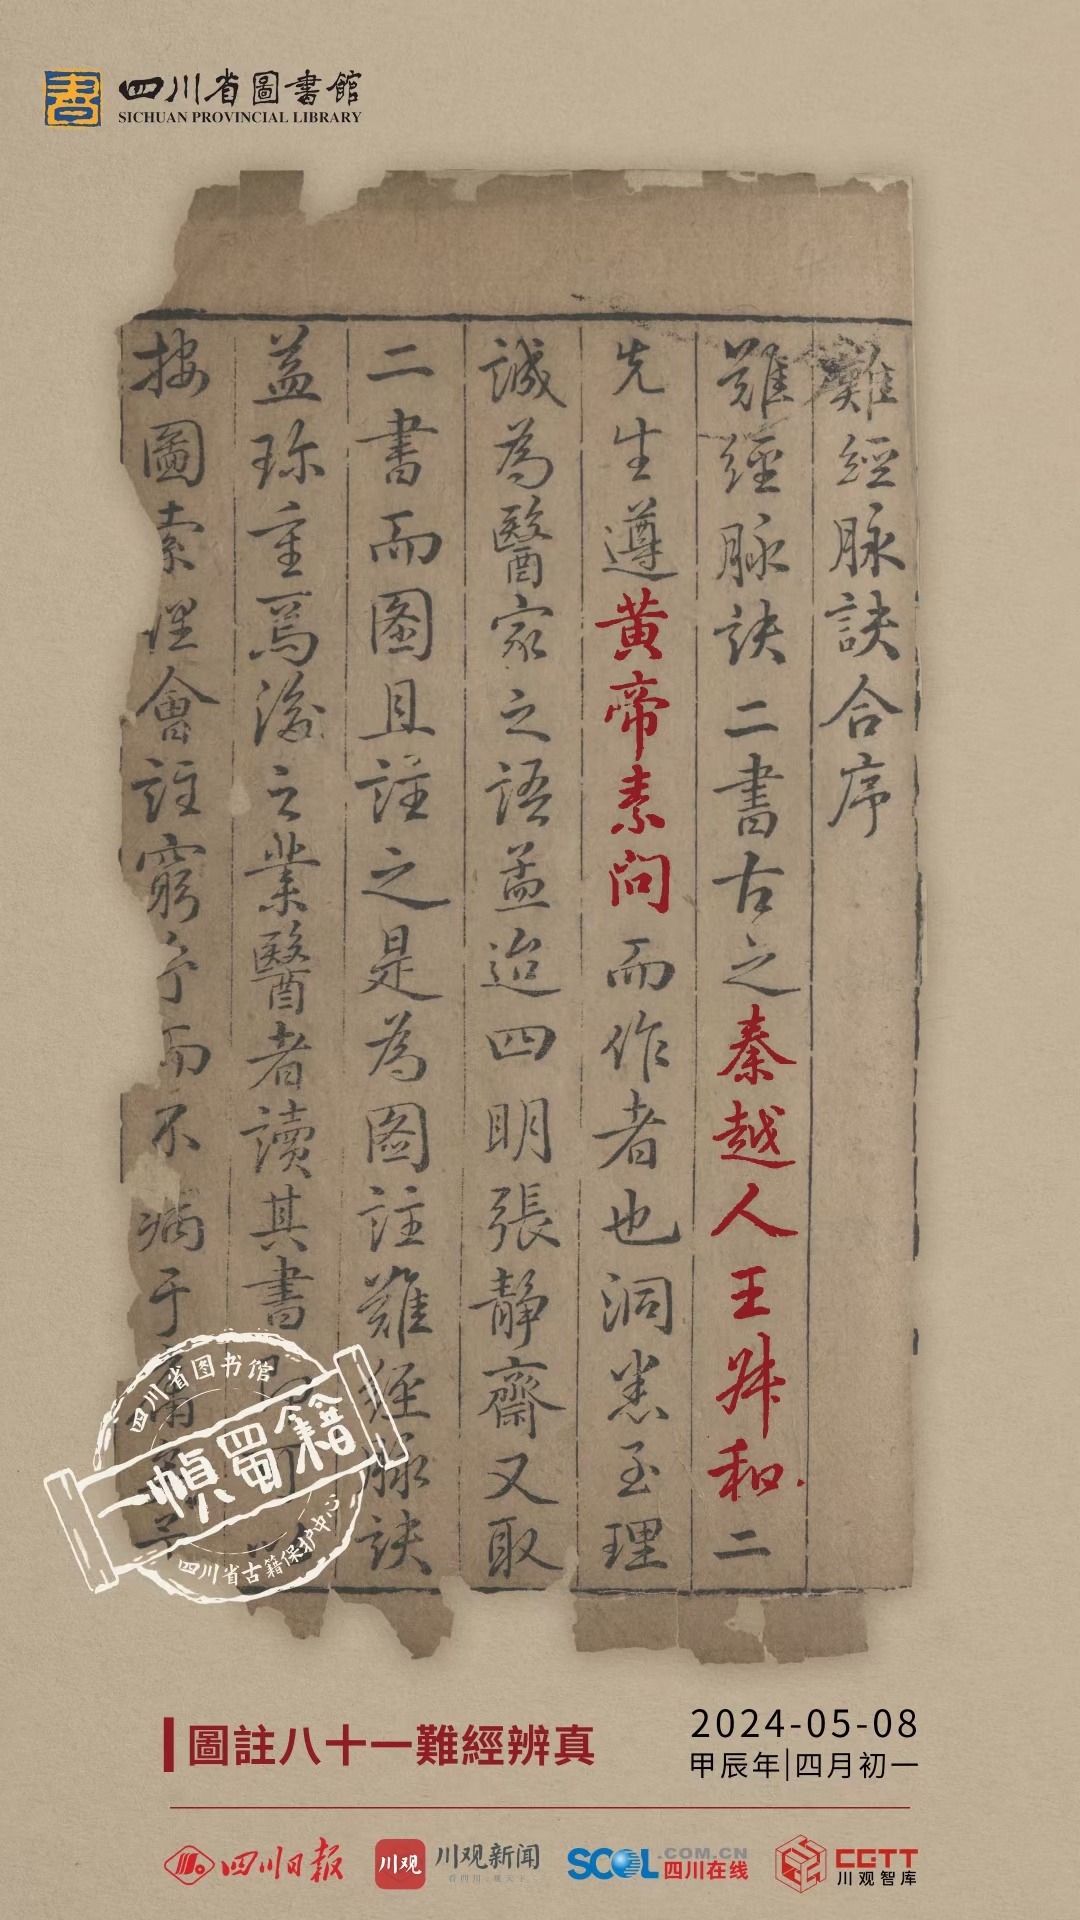 四川省圖書館
SICHUAN PROVINCIAL LIBRARY
難經脉訣合序
難經脉訣二書古之秦越人王叔和二
先生遵黃帝素问而作者也洞悉至理
誠為醫家之語孟迨四明張静齋又取
二書而图且註之是為图註難經脉訣
益珎重焉後之業醫者讀其書
按圖索理會註窮
而不病于
四川省图书馆
一幀蜀籍
四川省古籍保护中心
圖註八十一難經辨真
2024-05-08
甲辰年|四月初一
四川日报
川观
川观新闻
SCOL.COM.CN
四川在线
CGTT
川观智库